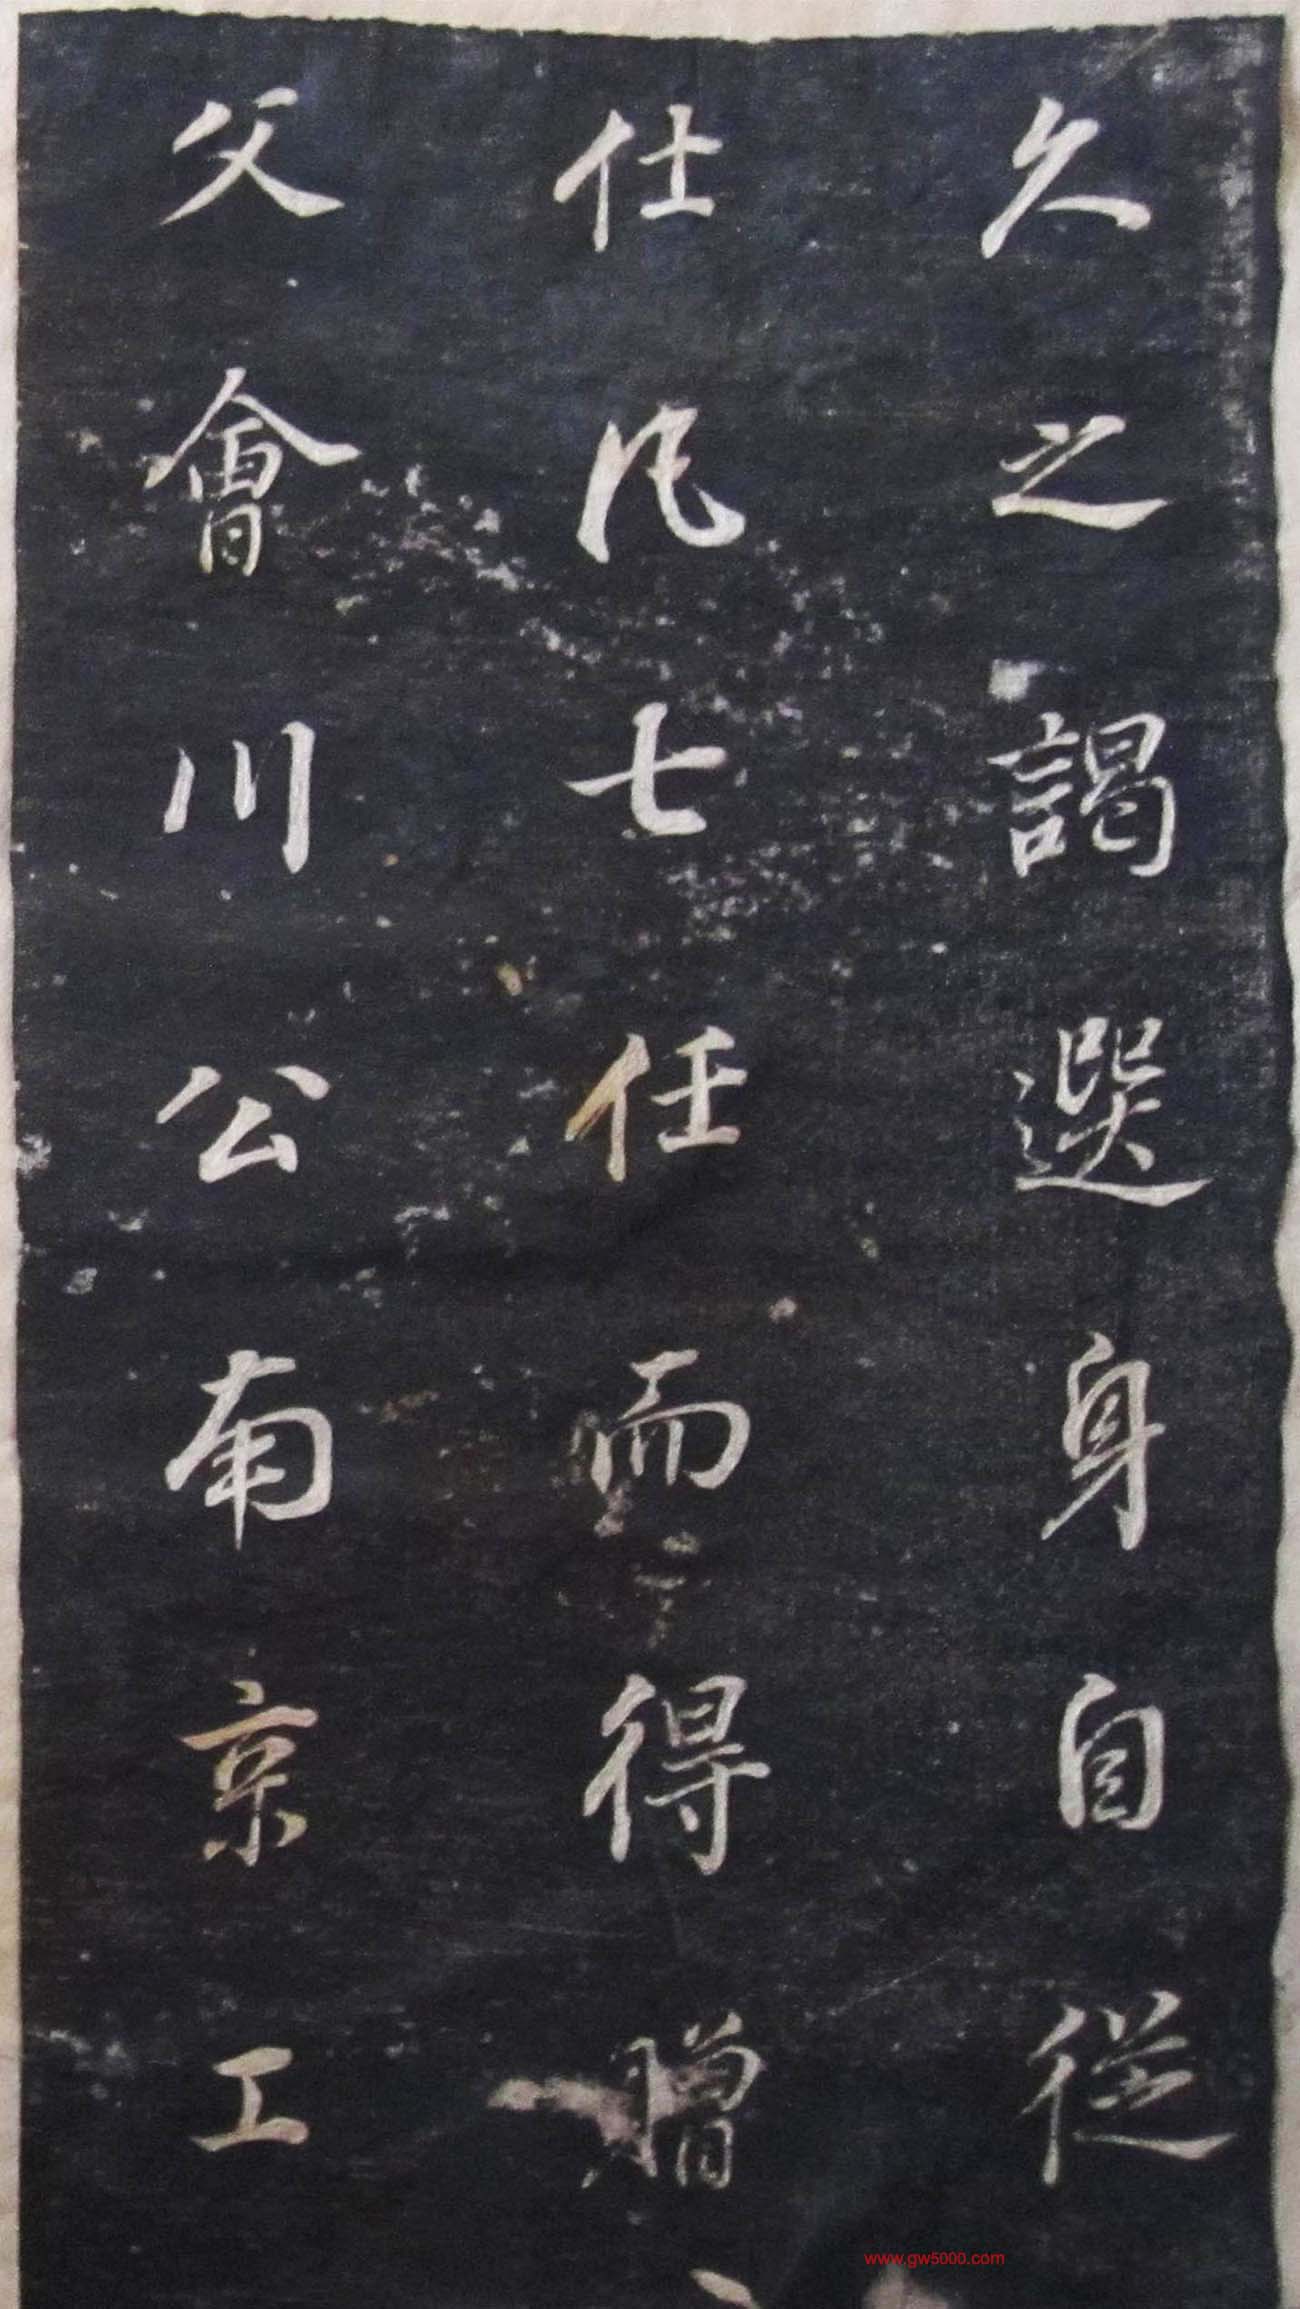 久之謁選身自從
仕凡七任而得贈
父會川公南京工
www.gw5000.com